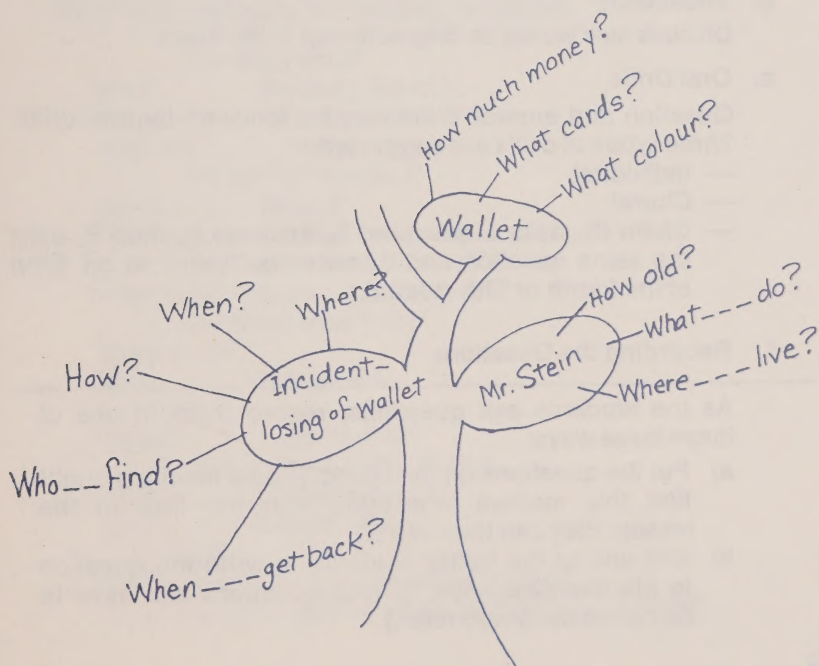 How much money?
What cards?
What colour?
Wallet
When?
Where?
How?
Incident–
losing of wallet
Who__find?
When____get back?
How old?
Mr. Stein
What____do?
Where____live?